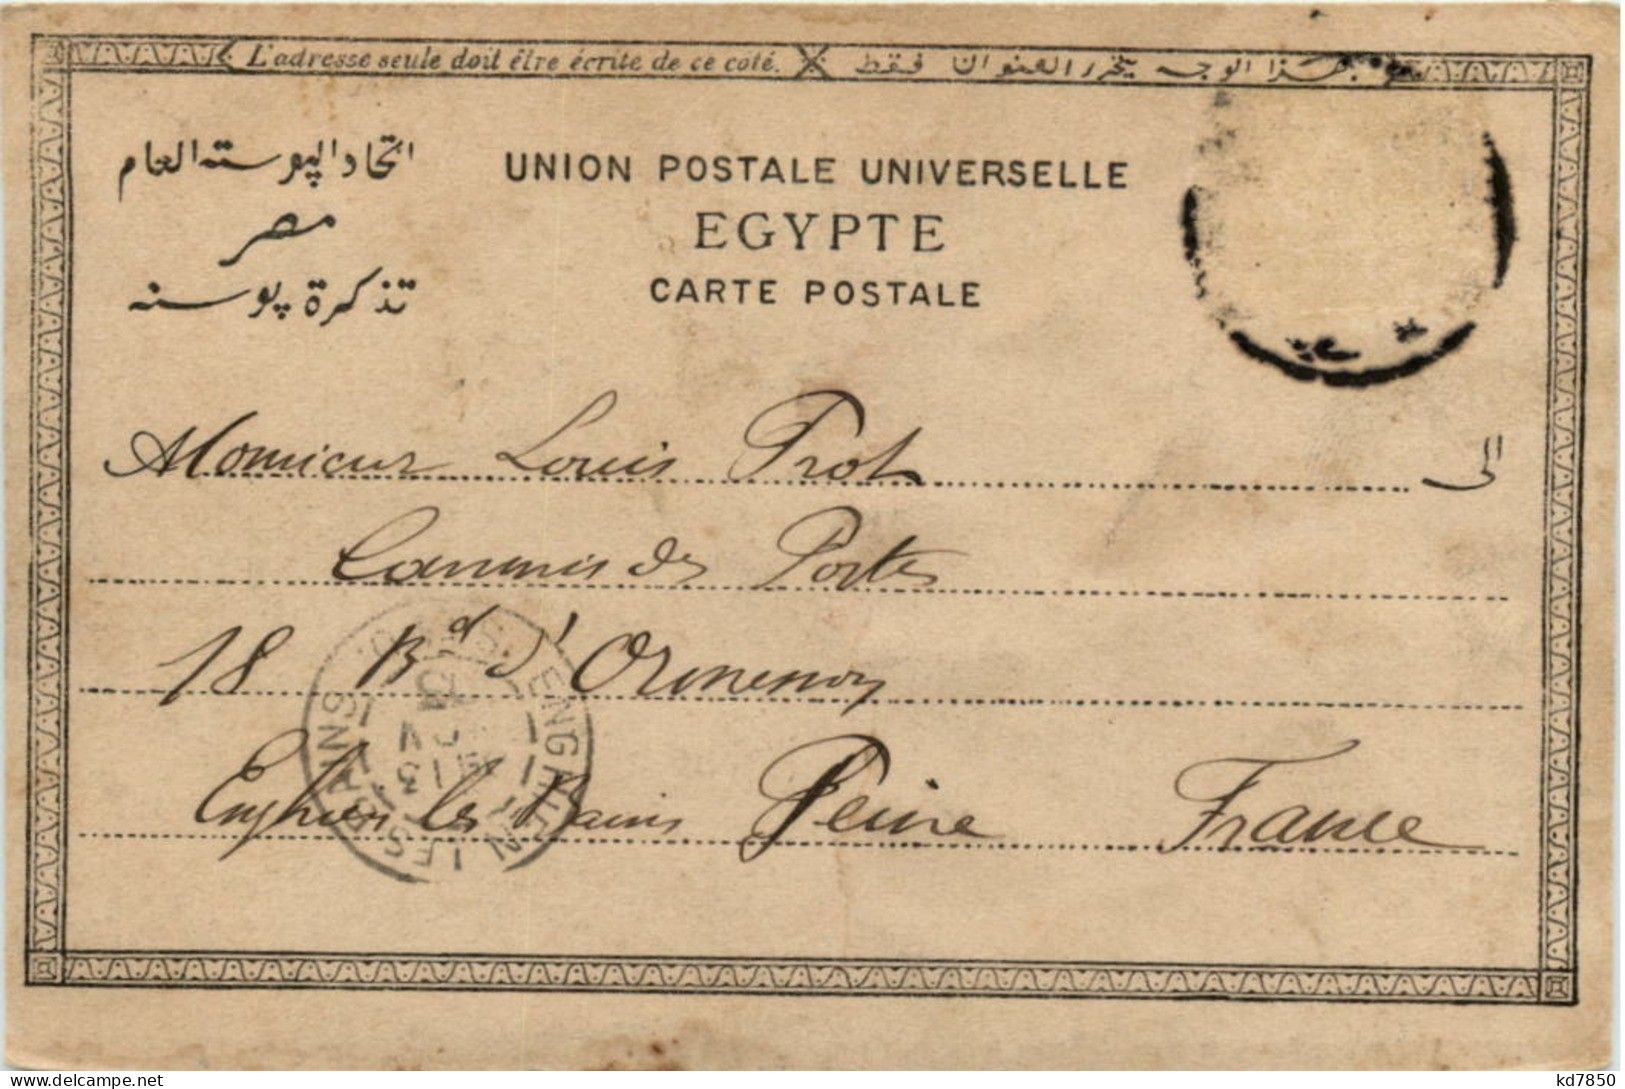 L'adresse seule doit être écrite de ce coté.
بهذا الوجه يتحرر العنوان فقط
اتحاد البوسته العام
مصر
تذكرة بوسته
UNION POSTALE UNIVERSELLE
EGYPTE
CARTE POSTALE
Monsieur Louis Prot
الى
Commis des Postes
18 Bd d'Ormesson
Enghien les Bains Seine France
ENGHIEN LES BAINS
kd7850